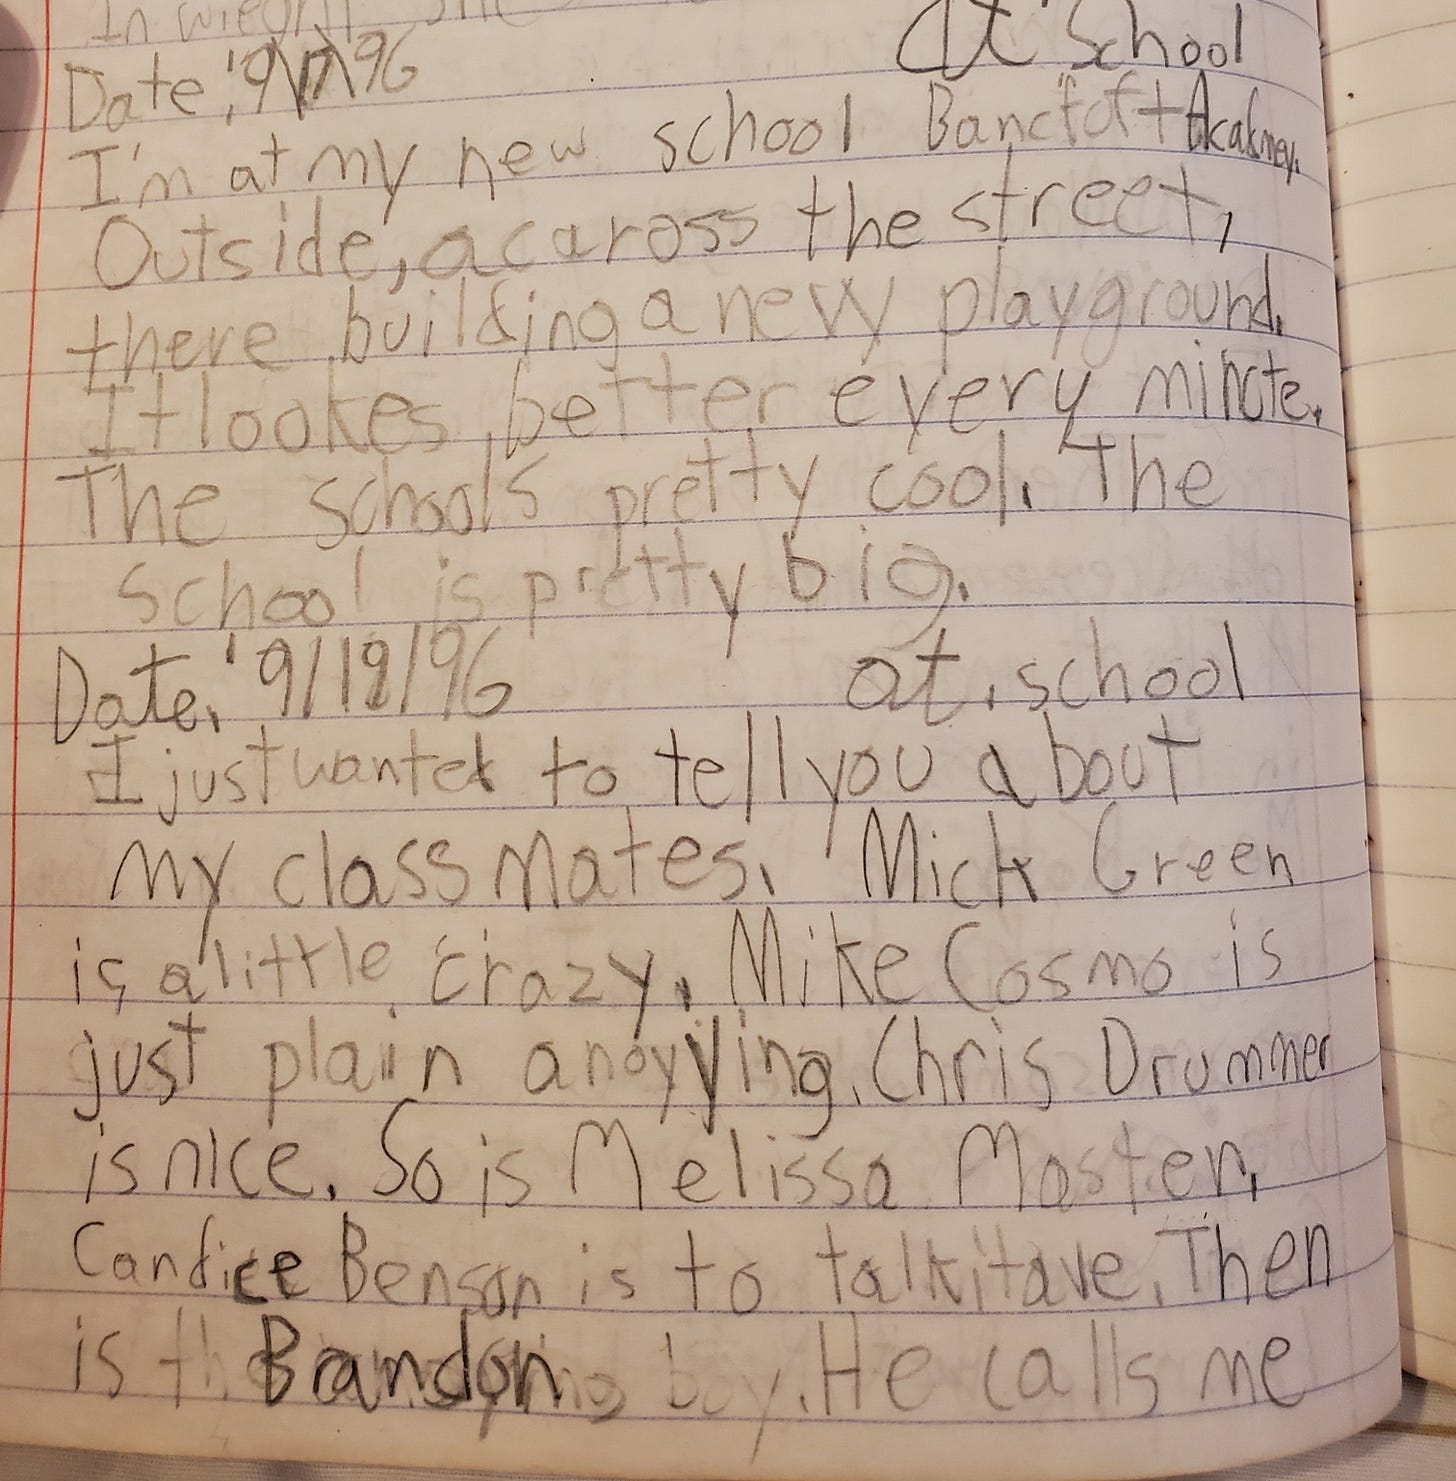 In
Date, '9\17\96 at School
I'm at my new school Bancfoft Acakmey.
Outside, acaross the street,
there building a new playground.
It lookes better every minute.
The schools pretty cool. The
school is pretty big.
Date, '9/18/96 at, school
I just wanted to tell you about
my classmates. Mick Green
is a little crazy. Mike Cosmo is
just plain anoyying. Chris Drummer
is nice. So is Melissa Moster,
Candice Benson is to talkitave. Then
is Brandon boy. He calls me